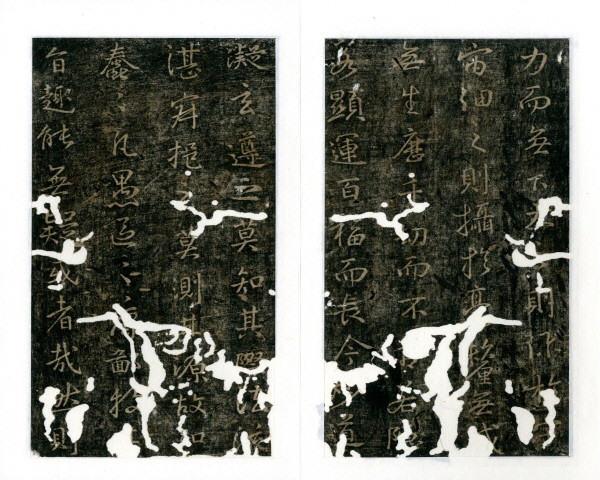 力而無下大則彌於
宙細之則攝於毫釐無滅
無生歷千劫而不若隱
若顯運百福而長今道
凝玄遵之莫知其際法流
湛寂挹之莫測其源故知
蠢凡愚區區庸鄙投
旨趣能無疑惑者哉然則